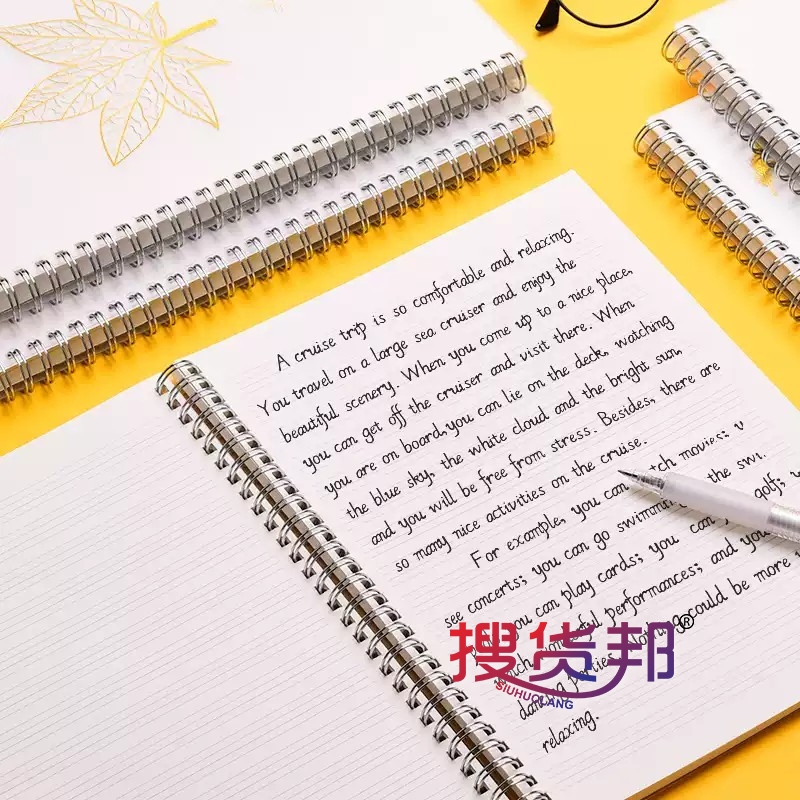 A cruise trip is so comfortable and relaxing.
You travel on a large sea cruiser and enjoy the
beautiful scenery. When you come up to a nice place,
you can get off the cruiser and visit there. When
you are on board, you can lie on the deck, watching
the blue sky, the white cloud and the bright sun,
and you will be free from stress. Besides, there are
so many nice activities on the cruise.
For example, you can movies;
see concerts; you can go the
you can play cards; you can golf;
performances; and
dancing parties. could be more
relaxing.
搜货邦®
SIUHUOLANG